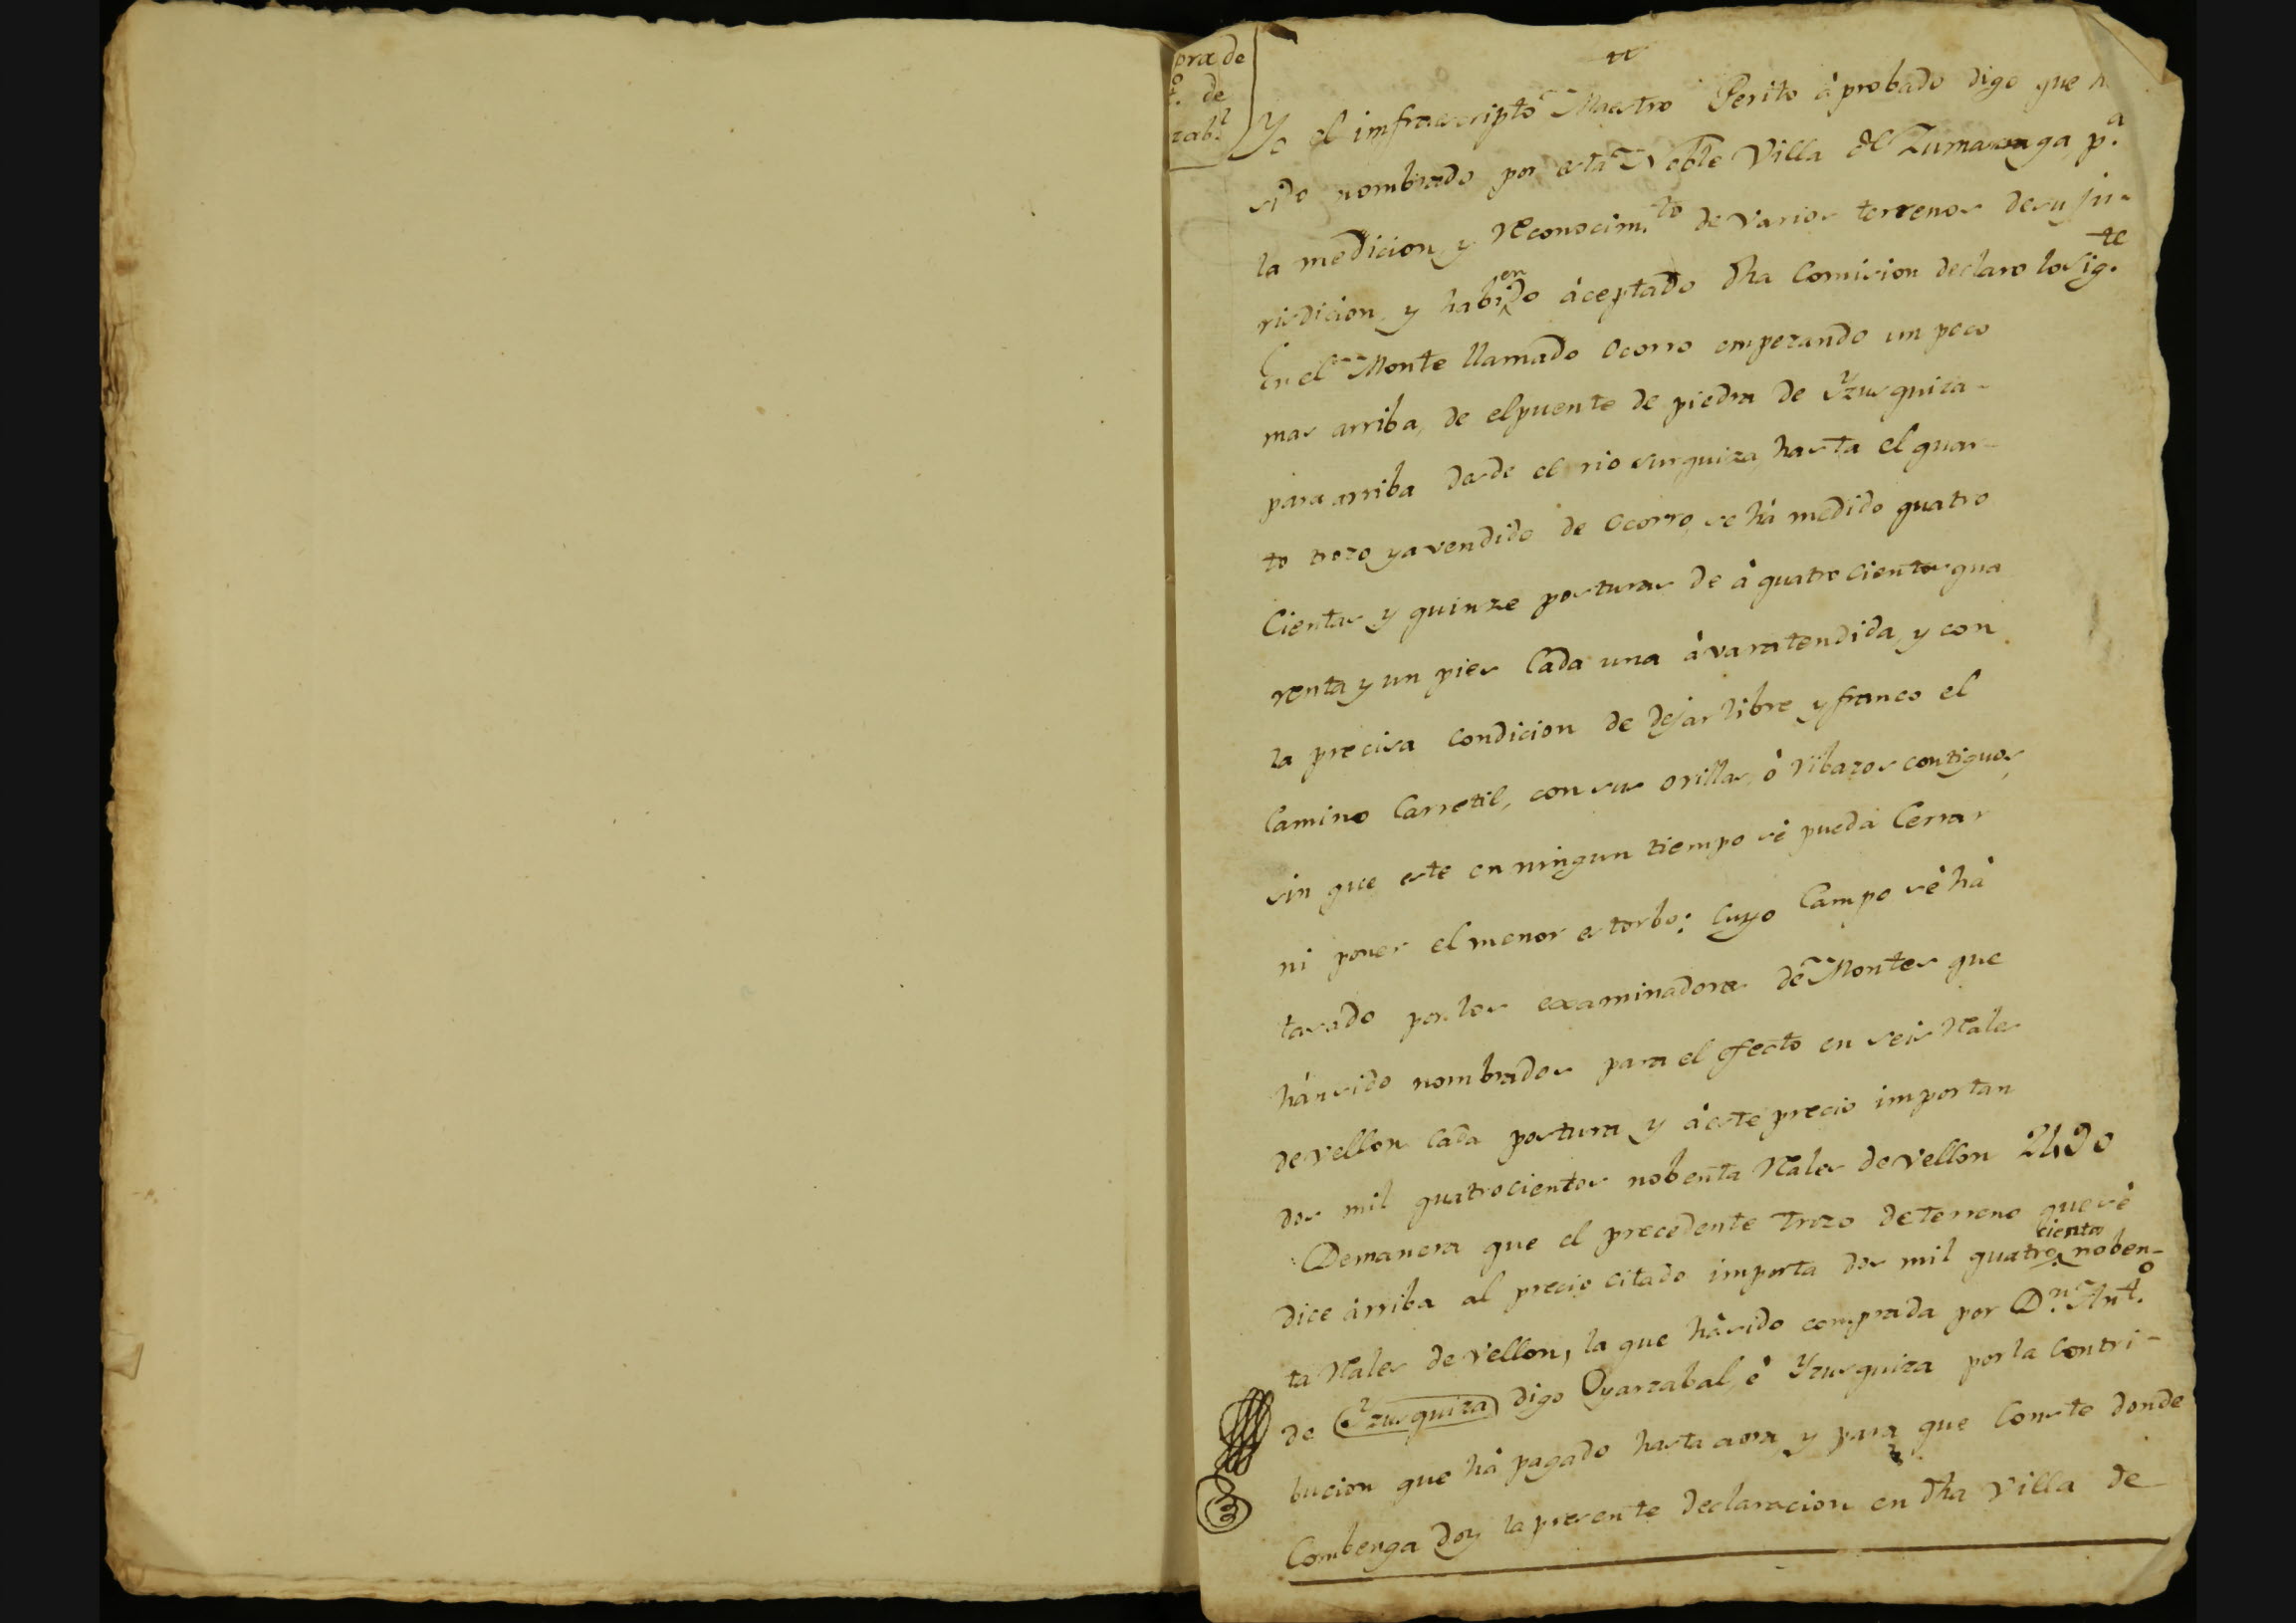 pra de
to. de
zab.l
Yo el imfraescripto Maestro Perito àprobado digo que h
sido nombrado por esta Noble Villa de Zumarraga, p.a
la medicion, y reconocim.to de varios terrenos de su ju-
risdicion, y habiendo àceptado dha Comision declaro lo sig.te
En el Monte llamado Ocorro empezando un poco
mas arriba, de el puente de piedra de Yzusquiza-
para arriba desde el rio Susquiza, hasta el quar-
to trozo ya vendido de Ocorro, se hà medido quatro
Cientas y quinze posturas de à quatrocientos qua
renta y un pies Cada una à vara tendida, y con
la precisa Condicion de dejar libre y franco el
Camino Carretil, con sus orillas, ò ribazos contiguos,
sin que este en ningun tiempo sè pueda Cerrar
ni poner el menor estorbo: Cuyo Campo sè hà
tasado por los examinadores de Montes que
hàn sido nombrados para el efecto en seis Rales
de vellon Cada postura y à este precio importan
dos mil quatrocientos nobenta Rales de vellon 2490
Demanera que el precedente trozo de terreno que sè
dice àrriba al precio citado importa dos mil quatrocientos noben-
ta Rales de vellon, la que hà sido comprada por D.n Ant.o
de Yzusquiza digo Oyarzabal, è Yzusquiza por la Contri-
bucion que hà pagado hasta aora, y para que Conste donde
Combenga doy la presente declaracion en dha Villa de